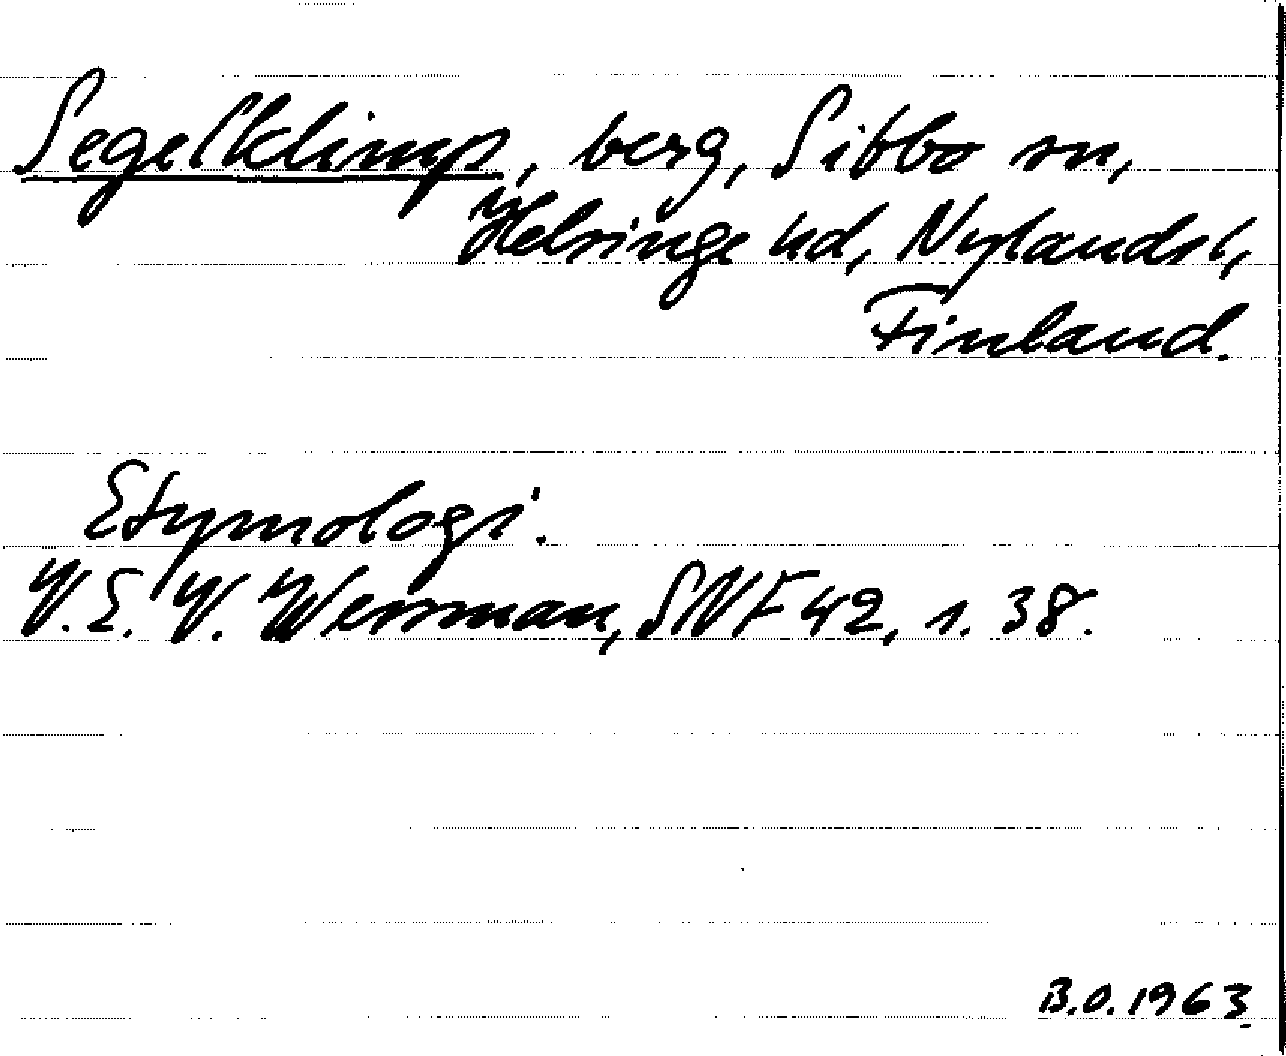 Segelklimp, berg, Sibbo sn,
Helsinge hd, Nylands l,
Finland.
Etymologi.
V. E. V. Wessman, SNF 42, s. 38.
B.O. 1963